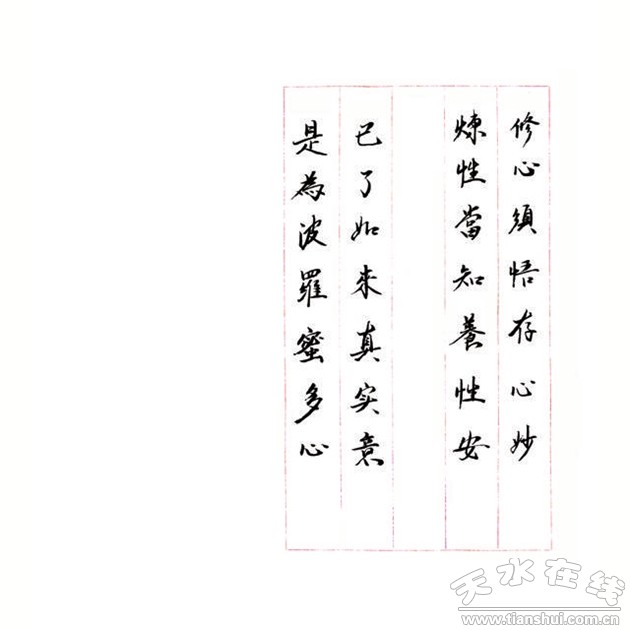 修心須悟存心妙
煉性當知養性安
已了如来真实意
是為波羅蜜多心
天水在线
www.tianshui.com.cn